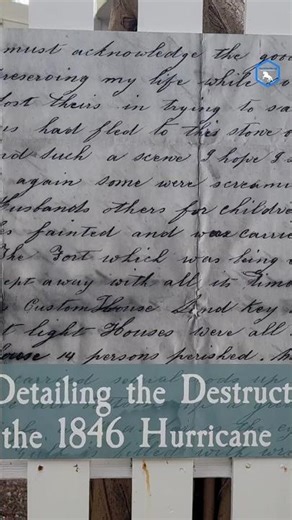 must acknowledge the goo
reserving my life while o
lost theirs in trying to sa
us had fled to this stone
nd such a scene I hope I s
again some were screami
usbands others for childre
s fainted and was carrie
The Fort which was being
ept away with all its Timb
Custom House Sand Key
t light Houses were all
ouse 14 persons perished.
Detailing the Destruct
the 1846 Hurricane